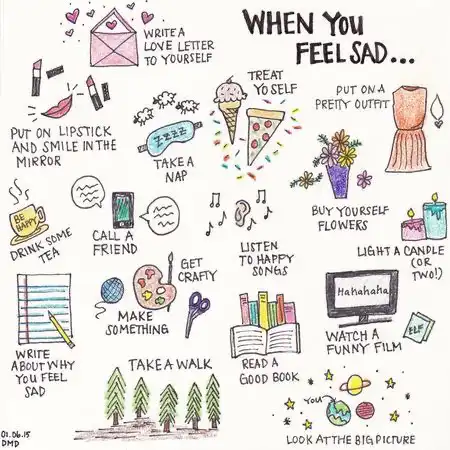 WHEN YOU
FEEL SAD...
WRITE A
LOVE LETTER
TO YOURSELF
PUT ON LIPSTICK
AND SMILE IN THE
MIRROR
ZZZZ
TAKE A
NAP
TREAT
YO SELF
PUT ON A
PRETTY OUTFIT
BUY YOURSELF
FLOWERS
LIGHT A CANDLE
(OR
TWO!)
BE
HAPPY
DRINK SOME
TEA
CALL A
FRIEND
LISTEN
TO HAPPY
SONGS
GET
CRAFTY
MAKE
SOMETHING
Hahahaha
ELF
WATCH A
FUNNY FILM
WRITE
ABOUT WHY
YOU FEEL
SAD
TAKE A WALK
READ A
GOOD BOOK
YOU
LOOK AT THE BIG PICTURE
01.06.15
DMD